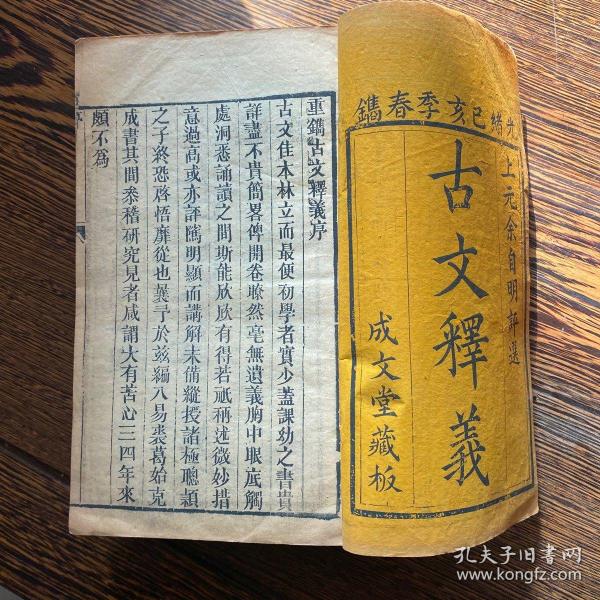 光緒己亥季春鐫
上元余自明評選
古文釋義
成文堂藏板
重鐫古文釋義序
古文佳本林立而最便初學者實少蓋課幼之書貴
詳盡不貴簡畧俾開卷瞭然毫無遺義胸中眼底觸
處洞悉誦讀之間斯能欣欣有得若祇稱述微妙措
意過高或亦評隲明顯而講解未備縱授諸極聰穎
之子終恐啓悟靡從也曩予於兹編八易裘葛始克
成書其間叅稽研究見者咸謂大有苦心三四年來
頗不爲
孔夫子旧书网
www.kongfz.com